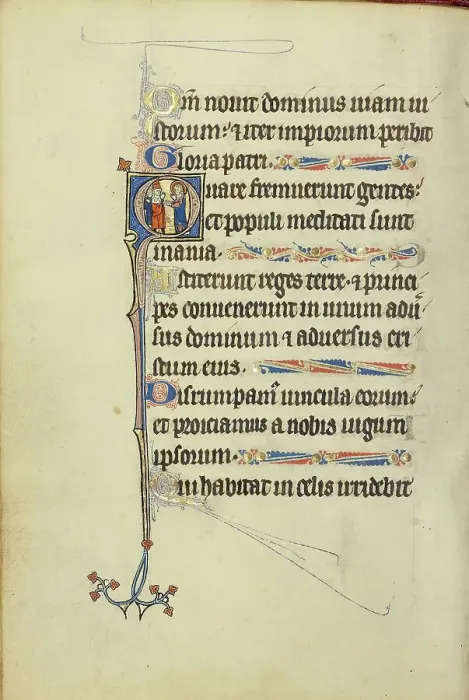 Qm nouit dominus uiam iu
storum: ⁊ iter impiorum peribit
Gloria patri.
Quare fremuerunt gentes:
et populi meditati sunt
inania.
Astiterunt reges terre. ⁊ princi
pes conuenerunt in unum adū
sus dominum ⁊ aduersus cri
stum eius.
Disrumpam᷒ uincula eorum:
et proiciamus a nobis iugum
ipsorum.
Qui habitat in celis irridebit